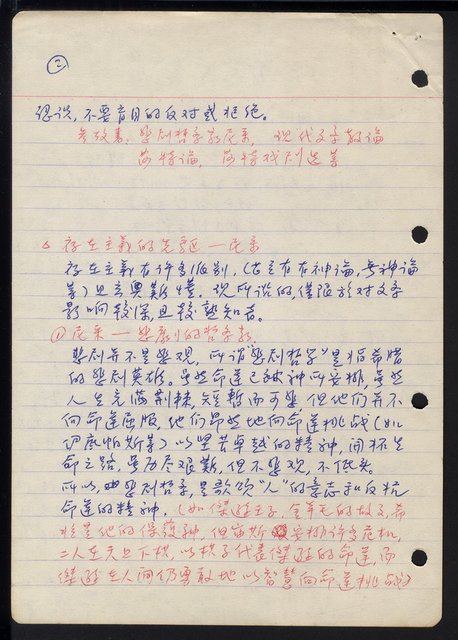 ②
认识,不要盲目的反对或拒绝。
参考书:悲剧哲学家尼采,现代文学散论
萨特论,萨特戏剧选等
△ 存在主义的先驱 — 尼采
存在主义有许多派别,(如有有神论,无神论
等)且玄奥难懂。现所说的,仅限于对文学
影响较深且较熟知者。
① 尼采 — 悲剧的哲学家
悲剧并不是悲观,所谓“悲剧哲学”是指希腊
的悲剧英雄。虽然命运已被神所安排,虽然
人生充满荆棘,短暂而可悲,但他们并不
向命运屈服,他们昂然地向命运挑战(如
伊底帕斯等)以坚苦卓越的精神,开拓生
命之路,虽历尽艰难,但不悲观,不低头。
所以,悲剧哲学,是歌颂“人”的意志和反抗
命运的精神。(如 王子,金羊毛的故事,希
拉是他的保护神,但宙斯安排许多危机,
二人在天上下棋,以棋子代表 的命运,而
在人间仍勇敢地以智慧向命运挑战)